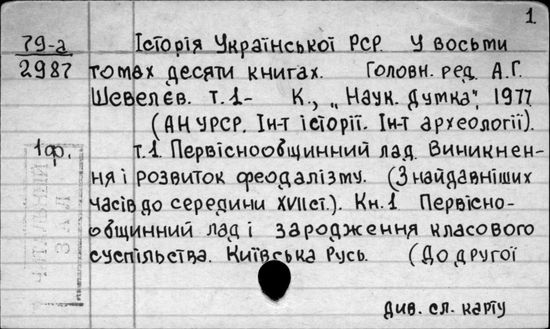 1.
79-а Історія Української РСР. У восьми
2987 томах десяти книгах. Головн. ред. А.Г.
Шевелєв. т.1- К., „Наук. Думка", 1977
(АН УРСР. Ін-т історії. Ін-т археології).
1ф. т.1. Первіснообщинний лад. Виникнен-
ня і розвиток феодалізму. (З найдавніших
часів до середини XVII ст.). Кн.1 Первісно-
общинний лад і зародження класового
суспільства. Київська Русь. (До другої
див. сл. карту
ЗАЛ